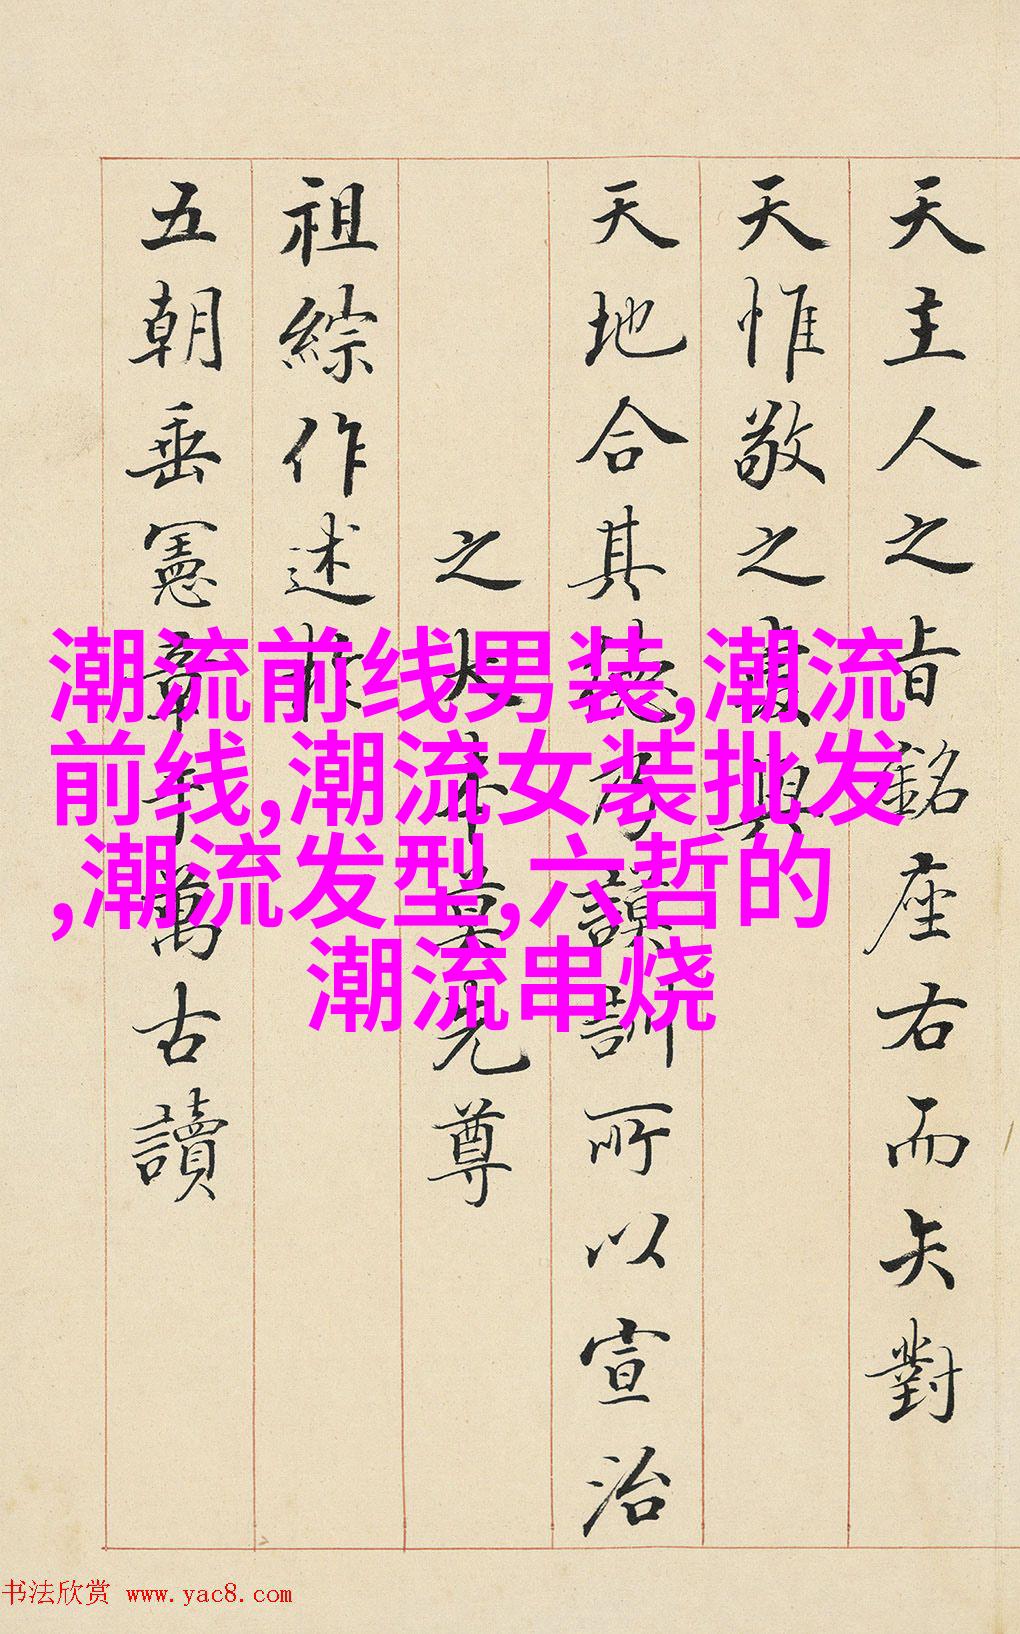 天主人之旨銘座右而矢對
天惟敬之虔與
天地合其德乃謨訓所以宣治
之大本莫先尊
祖綜作述於
五朝垂憲章千萬古讀
潮流前线男装,潮流
前线,潮流女装批发
,潮流发型,六哲的
潮流串烧
书法欣赏 www.yac8.com